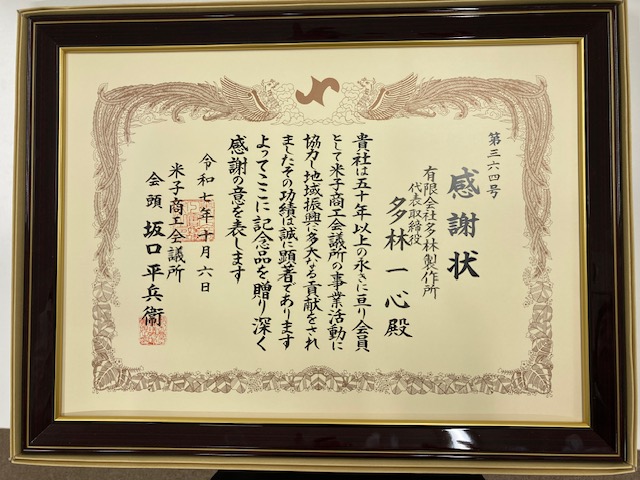 第三六四号
感謝状
有限会社多林製作所
代表取締役
多林一心殿
貴社は五十年以上の永きに亘り会員
として米子商工会議所の事業活動に
協力し地域振興に多大なる貢献をされ
ましたその功績は誠に顕著であります
よってここに記念品を贈り深く
感謝の意を表します
令和七年十月六日
米子商工会議所
会頭 坂口平兵衞